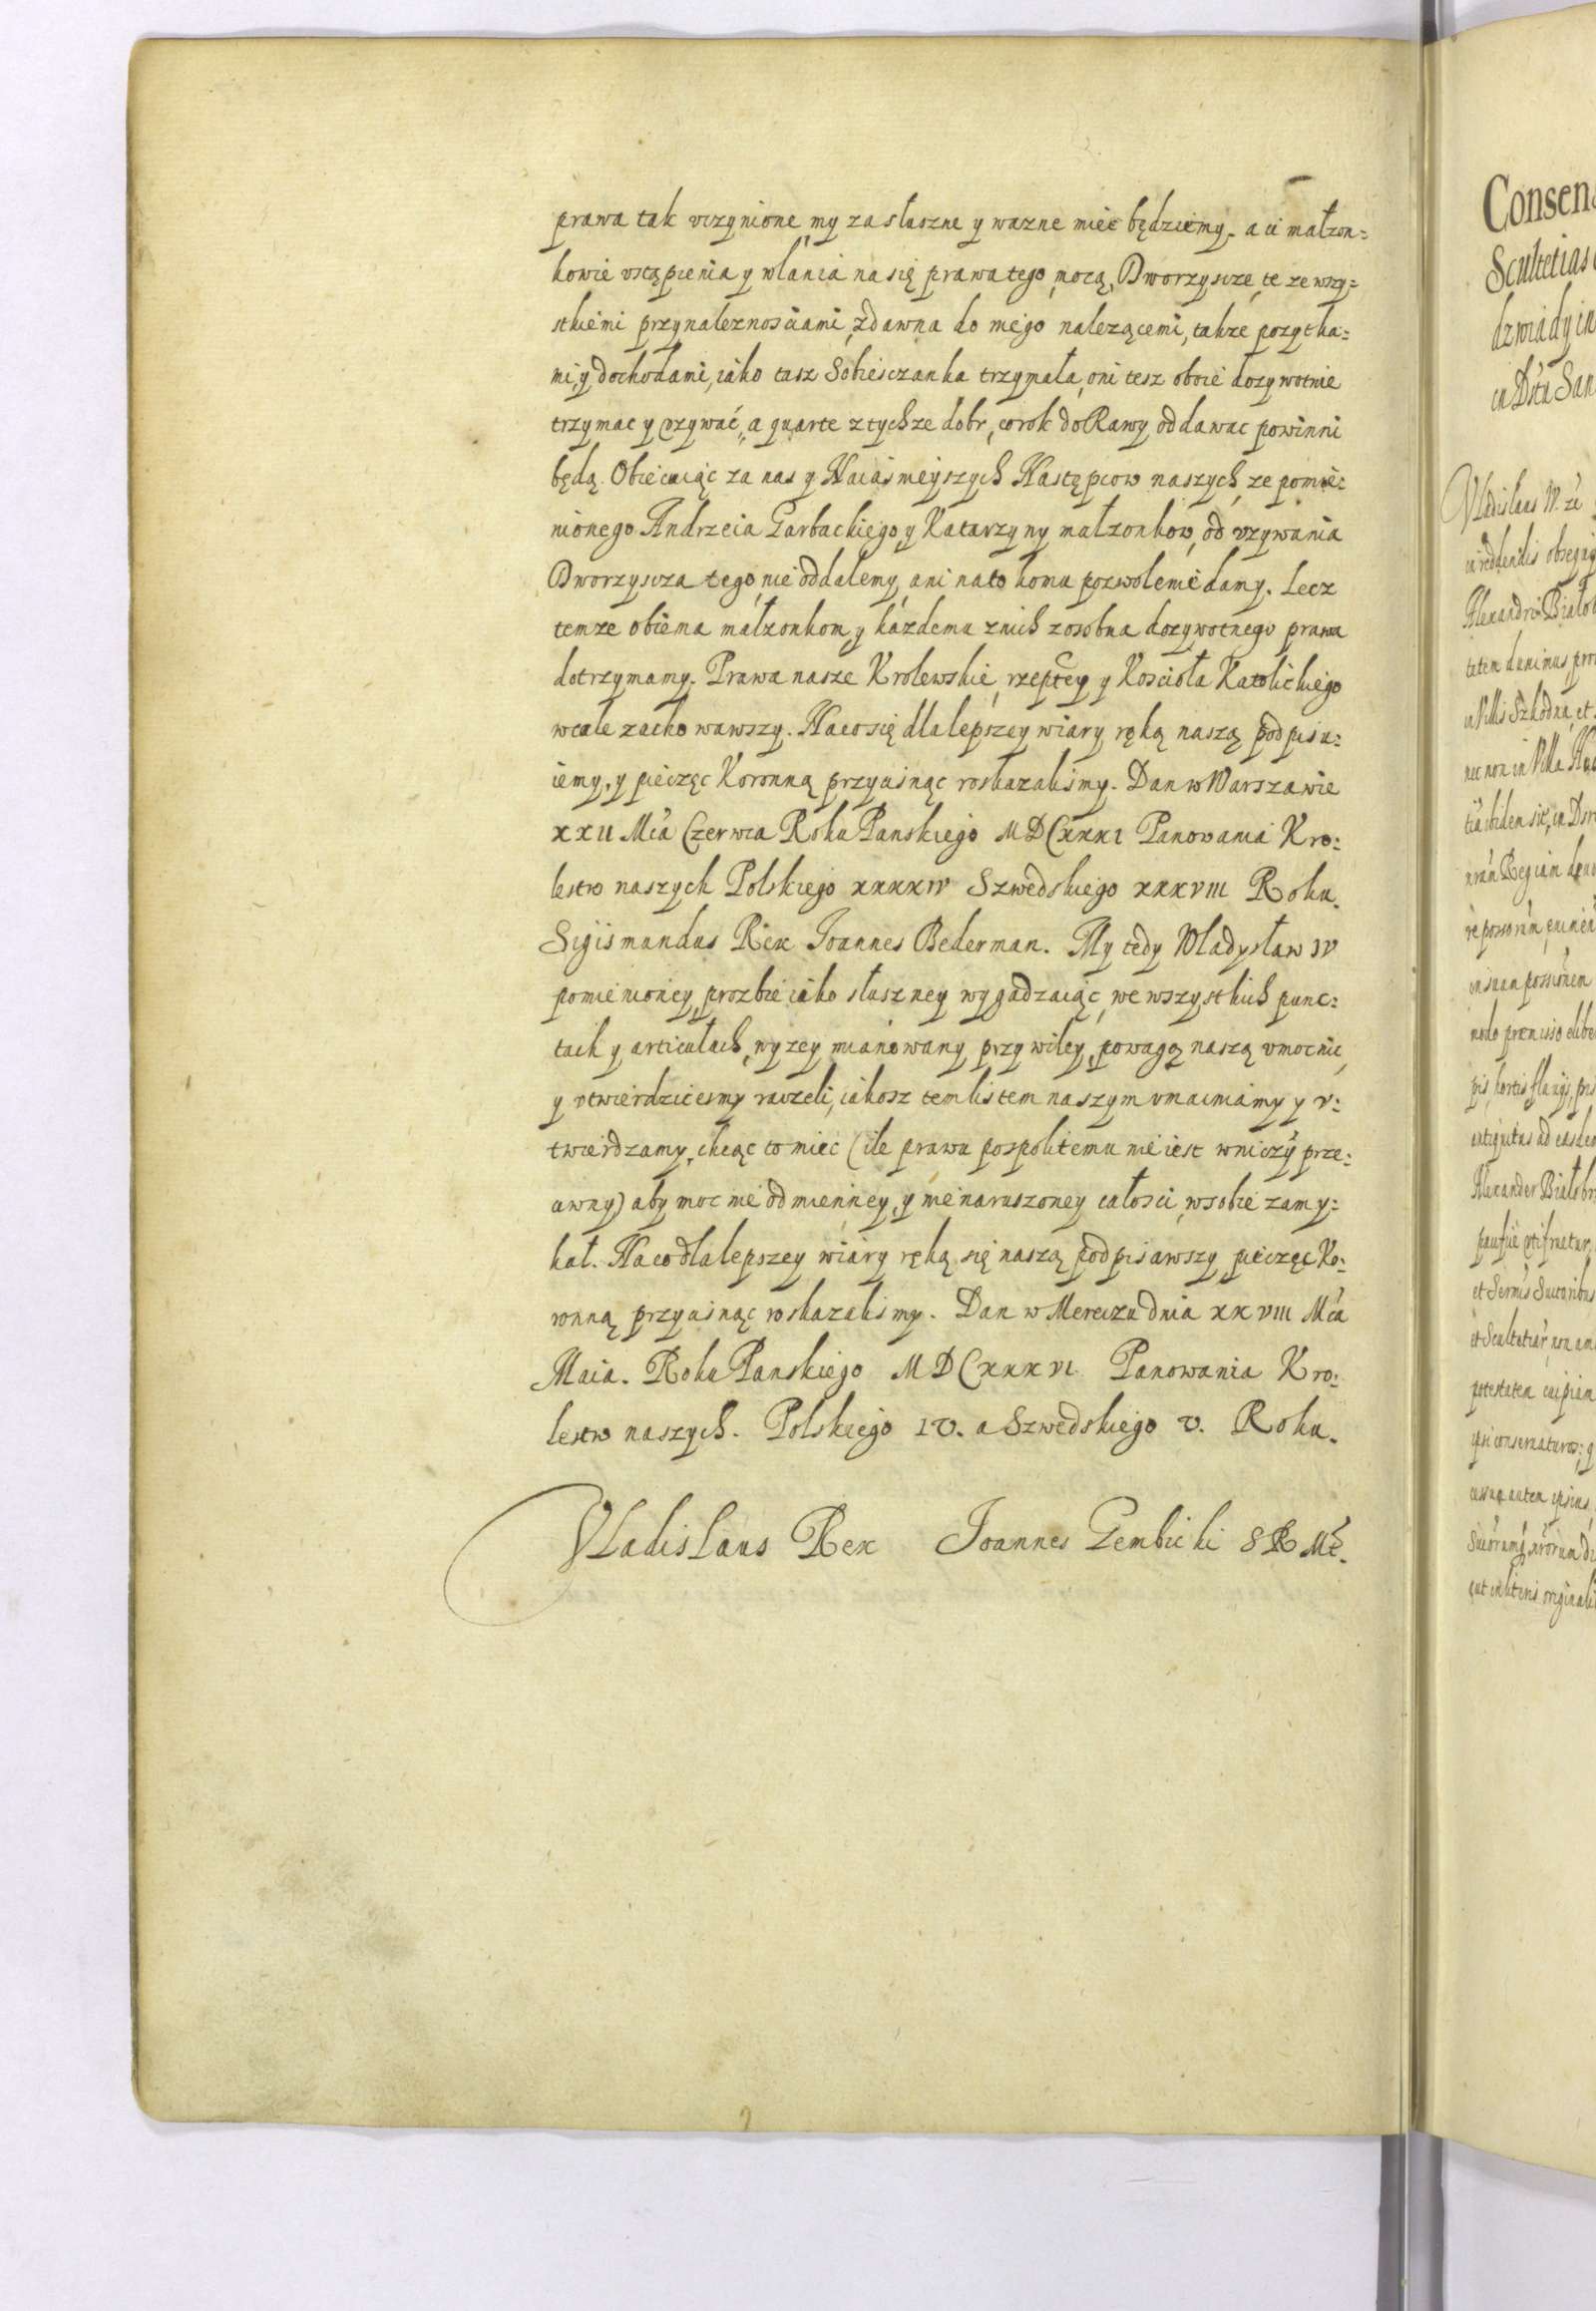 prawa tak vczynione my za słuszne y wazne miec będziemy. a ci małzon=
kowie vstąpienia y wlania na się prawa tego mocą, Dworzyscze te ze wszy=
stkiemi przynaleznosciami, zdawna do niego nalezącemi, takze pozytka=
mi, y dochodami, iako tasz Sobiesczanka trzymała, oni tesz oboie dozywotnie
trzymac y vzywać, a quarte z tychze dobr, co rok do Rawy oddawac powinni
będą. Obiecuiąc za nas y Naiasnieyszych Następcow naszych, ze pomie=
nionego Andrzeia Garbackiego y Katarzyny małzonkow, od vzywania
Dworzyscza tego, nie oddalemy, ani na to komu pozwolenie damy. Lecz
temze obiema małzonkom y kazdemu z nich zosobna dozywotnego prawa
dotrzymamy. Prawa nasze Krolewskie, rzeptey y Koscioła Katolickiego
wcale zachowawszy. Na co się dla lepszey wiary ręką naszą podpisu=
iemy, y pieczęc Koronną przycisnąc roskazalismy. Dan w Warszawie
XXII Mca Czerwca Roku Panskiego MDCXXXI Panowania Kro=
lestw naszych Polskiego XXXXIV Szwedskiego XXXVIII Roku.
Sigismundus Rex Joannes Bederman. My tedy Władysław IV
pomienioney prozbie iako słuszney wygadzaiąc, we wszystkich punc=
tach y articułach, wyzey mianowany przywiley, powagą naszą vmocnic,
y vtwierdzicesmy raczeli, iakosz tem listem naszym vmacniamy y v=
twierdzamy, chcąc to miec (ile prawu pospolitemu nie iest wniczy prze=
ciwny) aby moc nie odmienney, y nienaruszoney całosci, w sobie zamy=
kał. Na co dla lepszey wiary ręką się naszą podpisawszy pieczęc Ko=
ronną przycisnąc roskazalismy. Dan w Mereczu dnia XXVIII Mca
Maia. Roku Panskiego MDCXXXVI Panowania Kro=
lestw naszych. Polskiego IV. a Szwedskiego V. Roku.
Vladislaus Rex Joannes Gembicki S R Mt.
Consen
Scultetias
dzwiady in
in Dstu San
Vladislaus IV. ze
Alexandri Białob
tatem danimus pro
in Villis Szkodna, et
nec non in Villa
in suam possionem
modo premisso
Alexander Białobr
et Sermis
et Scultetiar non am
potestatem
ipsi conservaturos, q